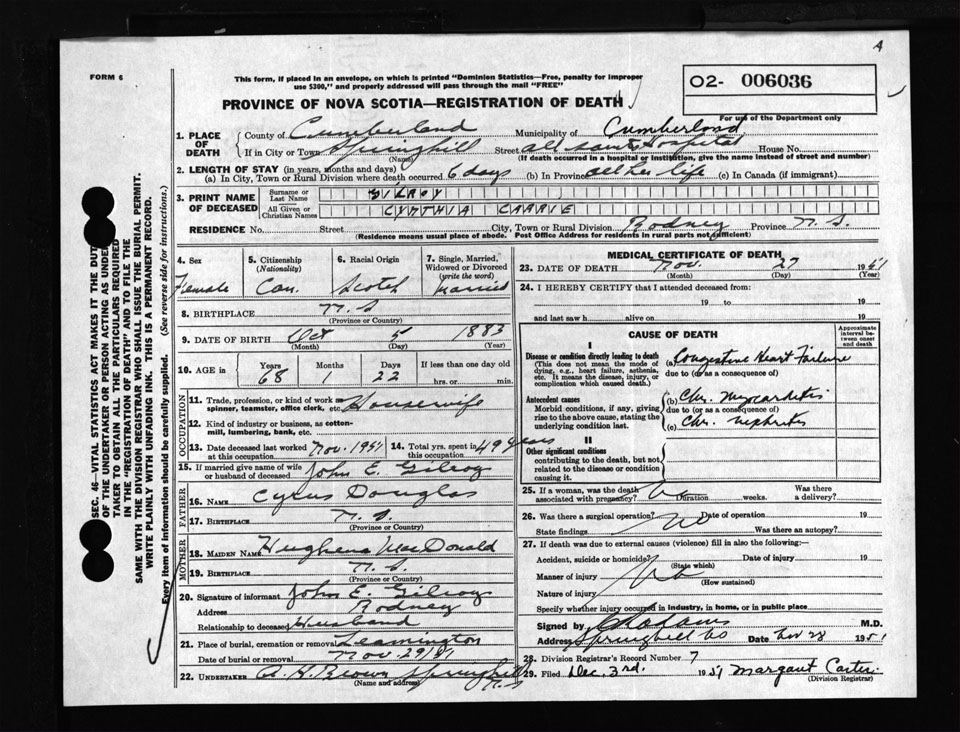 A
FORM 6
This form, if placed in an envelope, on which is printed "Dominion Statistics—Free, penalty for improper
use $300," and properly addressed will pass through the mail "FREE"
O2- 006036
PROVINCE OF NOVA SCOTIA—REGISTRATION OF DEATH
For use of the Department only
1. PLACE OF DEATH
County of Cumberland Municipality of Cumberland
If in City or Town Springhill Street All Saints Hospital House No.
(Name) (If death occurred in a hospital or institution, give the name instead of street and number)
2. LENGTH OF STAY (in years, months and days)
(a) In City, Town or Rural Division where death occurred 6 days (b) In Province all her life (c) In Canada (if immigrant)
3. PRINT NAME OF DECEASED
Surname or Last Name GILROY
All Given or Christian Names CYNTHIA CARRIE
RESIDENCE No. Street City, Town or Rural Division Rodney Province N. S.
(Residence means usual place of abode. Post Office Address for residents in rural parts not sufficient)
4. Sex Female
5. Citizenship (Nationality) Can.
6. Racial Origin Scotch
7. Single, Married, Widowed or Divorced (write the word) Married
8. BIRTHPLACE N. S
(Province or Country)
9. DATE OF BIRTH Oct 5 1883
(Month) (Day) (Year)
10. AGE in Years 68 Months 1 Days 22 If less than one day hrs. or min.
OCCUPATION
11. Trade, profession, or kind of work as spinner, teamster, office clerk, etc. Housewife
12. Kind of industry or business, as cotton-mill, lumbering, bank, etc.
13. Date deceased last worked at this occupation Nov. 1951
14. Total yrs. spent in this occupation 49 years
15. If married give name of wife or husband of deceased John E. Gilroy
FATHER
16. NAME Cyrus Douglas
17. BIRTHPLACE N. S.
(Province or Country)
MOTHER
18. MAIDEN NAME Hughena MacDonald
19. BIRTHPLACE N. S.
(Province or Country)
20. Signature of informant John E. Gilroy
Address Rodney
Relationship to deceased Husband
21. Place of burial, cremation or removal Leamington
Date of burial or removal Nov. 29/51
22. UNDERTAKER A. H. Brown Springhill N. S
(Name and address)
MEDICAL CERTIFICATE OF DEATH
23. DATE OF DEATH Nov. 27 1951
(Month) (Day) (Year)
24. I HEREBY CERTIFY that I attended deceased from:
19 to 19
and last saw h alive on 19
CAUSE OF DEATH
Approximate interval between onset and death
I
Disease or condition directly leading to death
(This does not mean the mode of dying, e.g. heart failure, asthenia, etc. It means the disease, injury, or complication which caused death.)
(a) Congestive Heart Failure
due to (or as a consequence of)
Antecedent causes
Morbid conditions, if any, giving rise to the above cause, stating the underlying condition last.
(b) Chr. Myocarditis
due to (or as a consequence of)
(c) Chr. nephritis
II
Other significant conditions
contributing to the death, but not related to the disease or condition causing it.
25. If a woman, was the death associated with pregnancy? No Duration weeks. Was there a delivery?
26. Was there a surgical operation? No Date of operation 19
State findings Was there an autopsy?
27. If death was due to external causes (violence) fill in also the following:—
Accident, suicide or homicide? Date of injury 19
(State which)
Manner of injury No
(How sustained)
Nature of injury
Specify whether injury occurred in industry, in home, or in public place
Signed by M.D.
Address Springhill NS Date Nov 28 1951
28. Division Registrar's Record Number 7
29. Filed Dec. 3rd. 1951 Margaret Carter
(Division Registrar)
SEC. 46—VITAL STATISTICS ACT MAKES IT THE DUTY
OF THE UNDERTAKER OR PERSON ACTING AS UNDER-
TAKER TO OBTAIN ALL THE PARTICULARS REQUIRED
IN THE "REGISTRATION OF DEATH" AND TO FILE THE
SAME WITH THE DIVISION REGISTRAR WHO SHALL ISSUE THE BURIAL PERMIT.
WRITE PLAINLY WITH UNFADING INK. THIS IS A PERMANENT RECORD.
Every item of information should be carefully supplied. (See reverse side for instructions.)